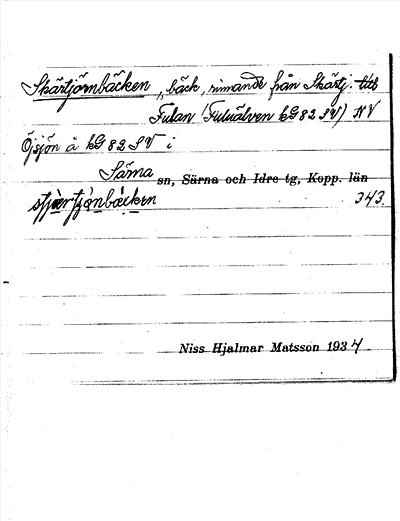 Skärtjörnbäcken, bäck, rinnande från Skärtj. till
Fulan (Fuluälven kG 82 SV) NV
Öjsjön å kG 82 SV i
Särna sn, Särna och Idre tg, Kopp. län
343.
Niss Hjalmar Matsson 1934